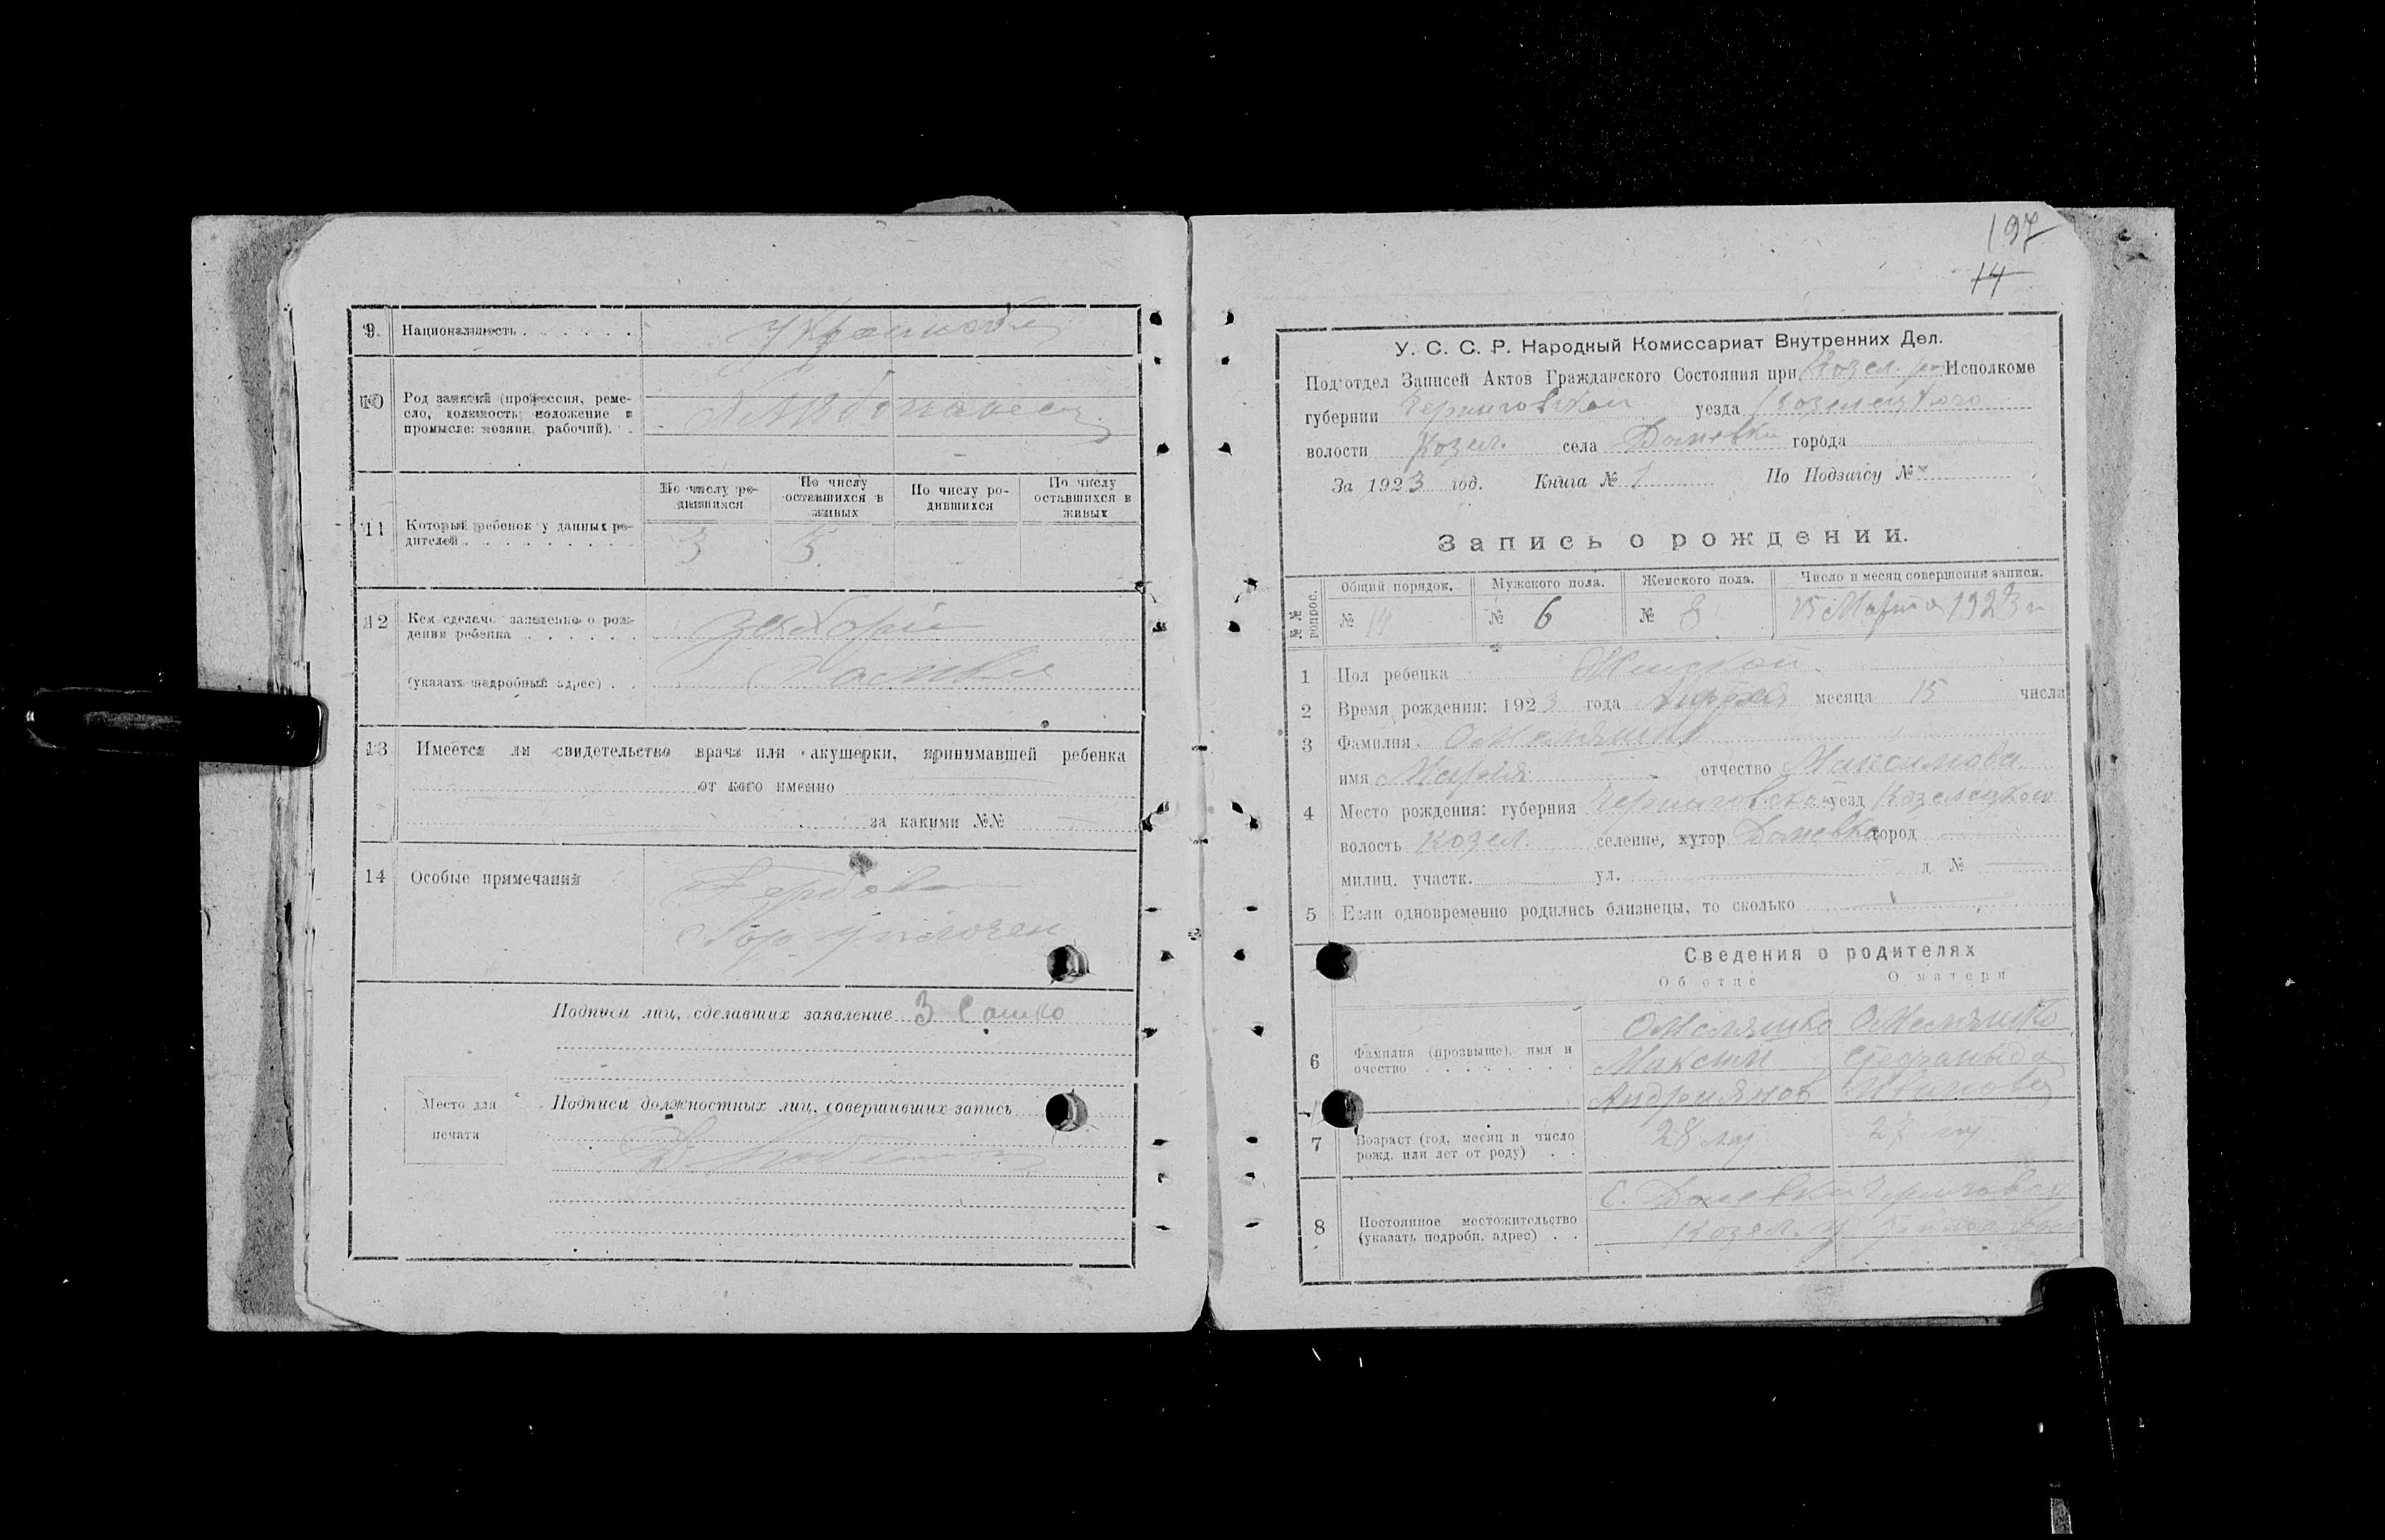 9 Национальность
10 Род занятий (профессия, реме-
сло, должность, положение в
промысле: хозяин, рабочий).
11 Который ребенок у данных ро-
дителей
По числу ро-
дившихся
По числу
оставшихся в
живых
По числу ро-
дившихся
По числу
оставшихся в
живых
3
12 Кем сделано заявление о рож-
дении ребенка
(указать подробный адрес)
13 Имеется ли свидетельство врача или акушерки, принимавшей ребенка
от кого именно
за какими №№
14 Особые примечания
Подписи лиц, сделавших заявление З Сашко
Место для
печати
Подписи должностных лиц, совершивших запись
197
14
У. С. С. Р. Народный Комиссариат Внутренних Дел.
Под'отдел Записей Актов Гражданского Состояния при Козел. Исполкоме
губернии Черниговской уезда Козелецкого
волости Козел. села Даневки города
За 1923 год. Книга № 1 По Подзагсу №
Запись о рождении.
№№ вопрос.
Общий порядок.
Мужского пола.
Женского пола.
Число и месяц совершения записи.
№ 14
№ 6
№ 8
15 Марта 1923 г
1 Пол ребенка Женской
2 Время рождения: 1923 года месяца 15 числа
3 Фамилия Омеляшко
имя Мария отчество Максимова
4 Место рождения: губерния Черниговской уезд Козелецкого
волость Козел. селение, хутор Даневка город
милиц. участк. ул. д №
5 Если одновременно родились близнецы, то сколько
Сведения о родителях
Об отце
О матери
6 Фамилия (прозвище), имя и
очество
Омеляшко Омеляшко
Максим Стефанида
Андреянов Иванова
7 Возраст (год, месяц и число
рожд. или лет от роду)
28 лет 27 лет
8 Постоянное местожительство
(указать подробн. адрес)
С. Даневка Черниговск
Козел. у.